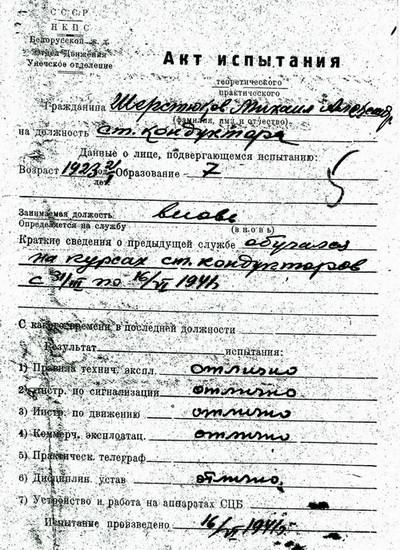 СССР
НКПС
Белорусской ж. д.
Отдел Движения
Унечское отделение
Акт испытания
теоретического
практического
Гражданина Шерстюков Михаил
(фамилия, имя и отчество)
на должность ст. кондуктора
Данные о лице, подвергающемся испытанию:
Возраст 1923 лет. Образование 7
5
Занимаемая должность вновь
Определяется на службу (вновь)
Краткие сведения о предыдущей службе обучался
на курсах ст. кондукторов
с 31/III по 16/VI 1941
С какого времени в последней должности
Результат испытания:
1) Правила технич. экспл. отлично
2) Инстр. по сигнализации отлично
3) Инстр. по движению отлично
4) Коммерч. эксплоатац. отлично
5) Практическ. телеграф
6) Дисциплин. устав отлично
7) Устройство и работа на аппаратах СЦБ
Испытание произведено 16/VI 1941